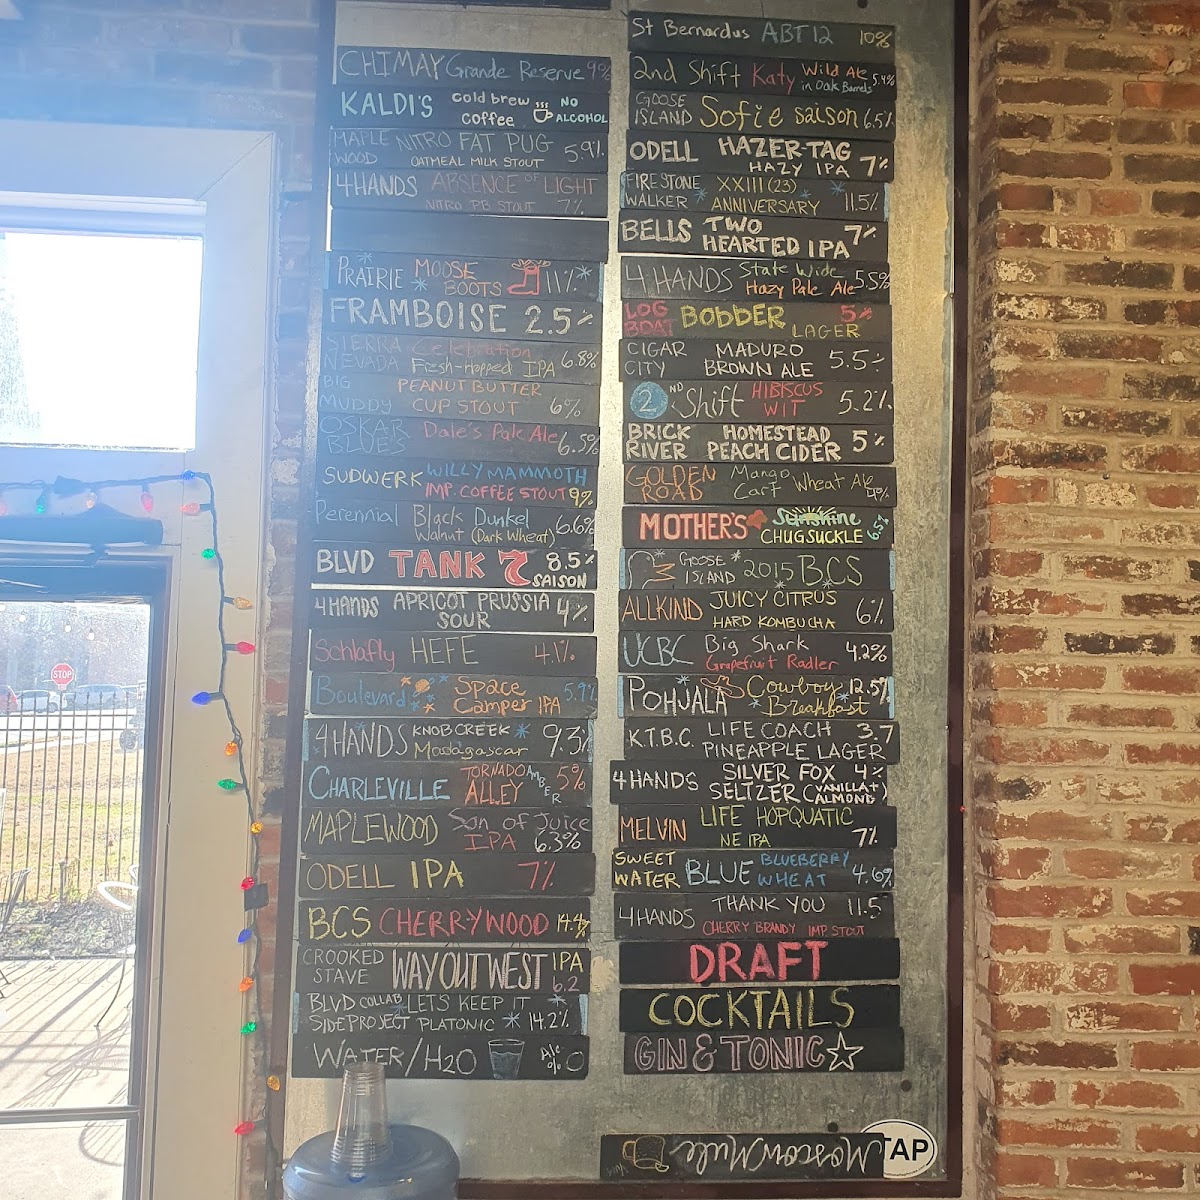 CHIMAY Grande Reserve 9%
KALDI'S cold brew NO
coffee ALCOHOL
MAPLE NITRO FAT PUG 5.9%
WOOD OATMEAL MILK STOUT
4HANDS ABSENCE OF LIGHT
NITRO PB STOUT 7%
PRAIRIE MOOSE 11%*
* BOOTS
FRAMBOISE 2.5%
SIERRA Celebration 6.8%
NEVADA Fresh-Hopped IPA
BIG PEANUT BUTTER
MUDDY CUP STOUT 6%
OSKAR Dale's Pale Ale 6.5%
BLUES
SUDWERK WILLY MAMMOTH
IMP. COFFEE STOUT 9%
Perennial Black Dunkel 6.6%
Walnut (Dark Wheat)
BLVD TANK 7 8.5%
SAISON
4HANDS APRICOT PRUSSIA 4%
SOUR
Schlafly HEFE 4.1%
Boulevard Space 5.9%
Camper IPA
4HANDS KNOB CREEK * 9.3%
Madagascar
CHARLEVILLE TORNADO AMBER 5%
ALLEY
MAPLEWOOD Son of Juice
IPA 6.3%
ODELL IPA 7%
BCS CHERRYWOOD 14.4%
CROOKED WAY OUT WEST IPA
STAVE 6.2
BLVD COLLAB LETS KEEP IT *
SIDEPROJECT PLATONIC * 14.2%
WATER/H2O Alc % 0
St Bernardus ABT 12 10%
2nd Shift Katy Wild Ale 5.4%
in Oak Barrels
GOOSE Sofie saison 6.5%
ISLAND
ODELL HAZER-TAG 7%
HAZY IPA
FIRESTONE XXIII (23) *
WALKER * ANNIVERSARY 11.5%
BELLS TWO 7%
HEARTED IPA
4 HANDS State Wide 5.5%
Hazy Pale Ale
LOG BOBBER 5%
BOAT LAGER
CIGAR MADURO 5.5%
CITY BROWN ALE
2ND Shift HIBISCUS 5.2%
WIT
BRICK HOMESTEAD 5%
RIVER PEACH CIDER
GOLDEN Mango Wheat Ale 4%
ROAD Cart
MOTHER'S Sunshine 6.5%
CHUGSUCKLE
GOOSE * 2015 BCS
ISLAND
ALLKIND JUICY CITRUS 6%
HARD KOMBUCHA
UCBC Big Shark 4.2%
Grapefruit Radler
POHJALA Cowboy 12.5%
* Breakfast
K.T.B.C. LIFE COACH 3.7
PINEAPPLE LAGER
4HANDS SILVER FOX 4%
SELTZER (VANILLA +
ALMOND)
MELVIN LIFE HOPQUATIC
NE IPA 7%
SWEET BLUE BLUEBERRY 4.6%
WATER WHEAT
4HANDS THANK YOU 11.5
CHERRY BRANDY IMP. STOUT
DRAFT
COCKTAILS
GIN & TONIC
Moscow Mule
TAP
STOP